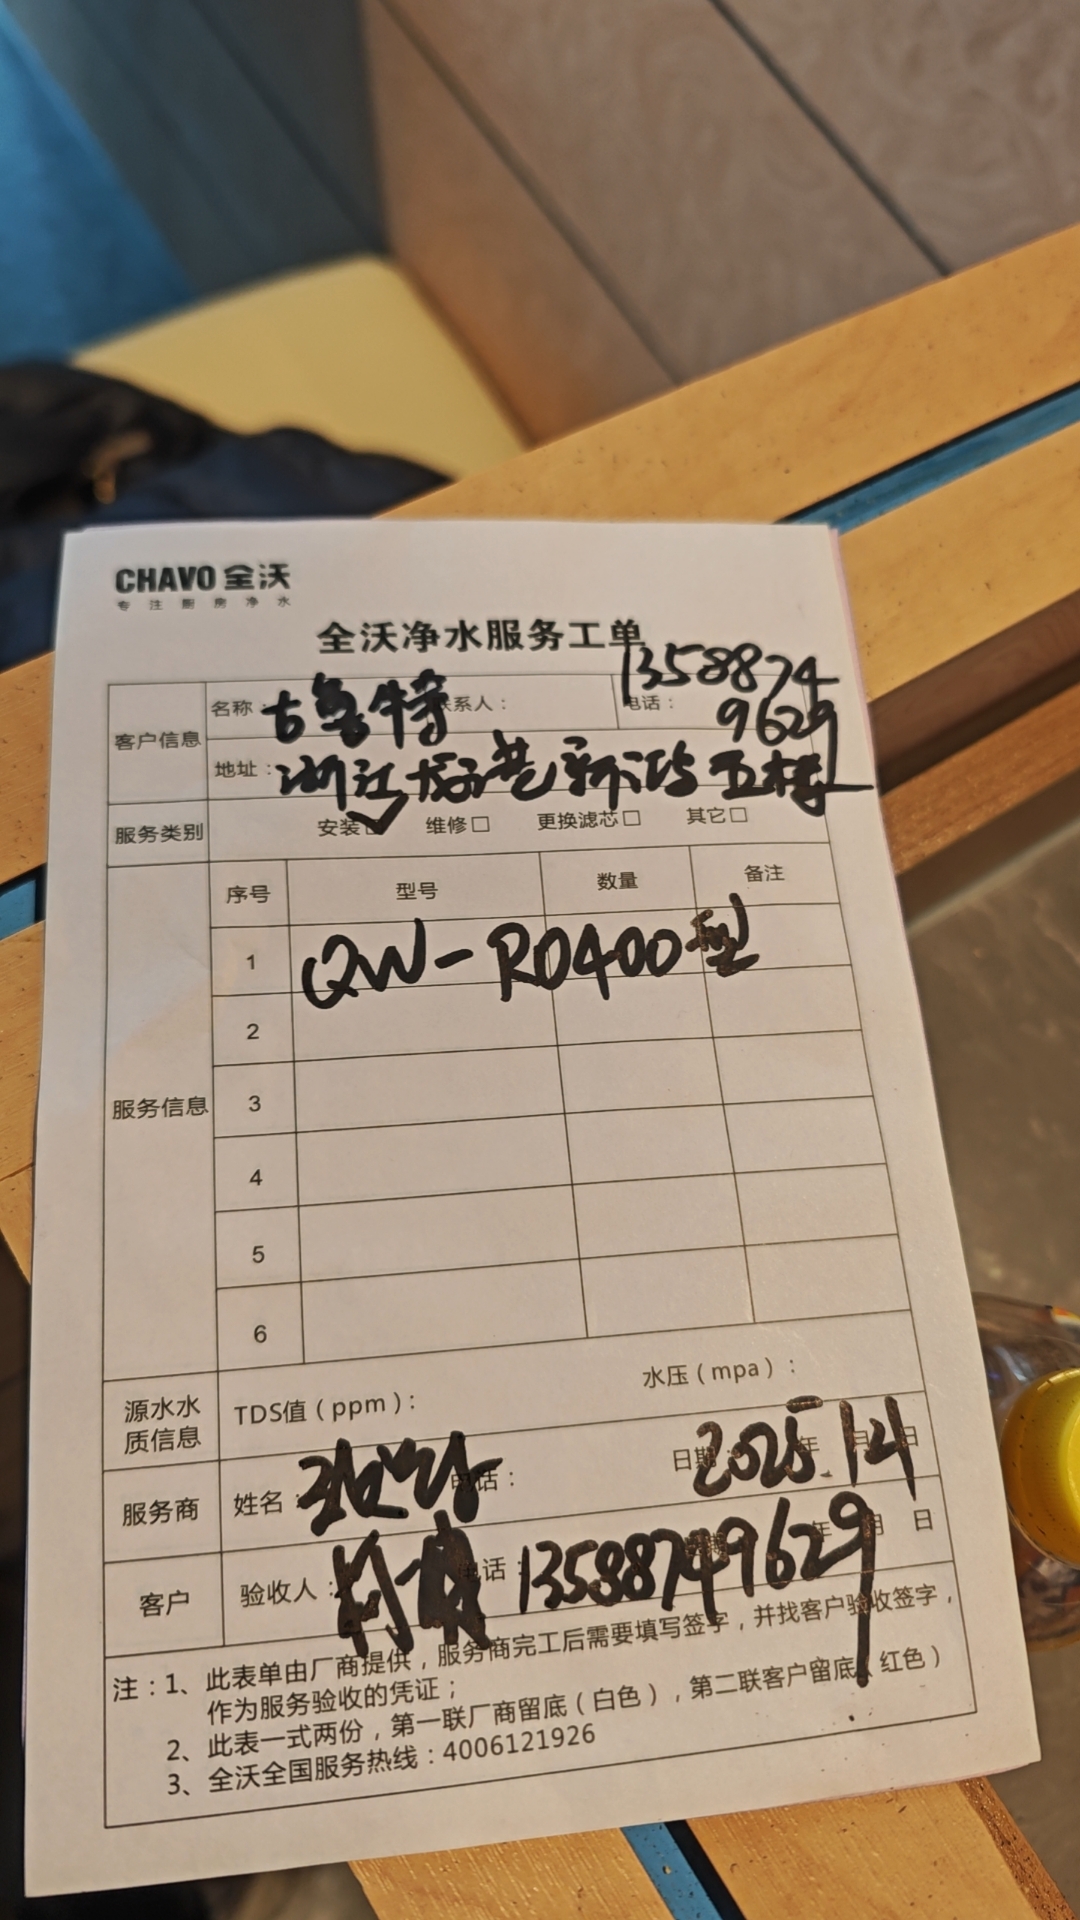 CHAVO 全沃
专注厨房净水
全沃净水服务工单
客户信息
名称：古鲁特 联系人： 电话：13588749629
地址：浙江龙港新鸿五楼
服务类别 安装☑ 维修□ 更换滤芯□ 其它□
服务信息
序号 型号 数量 备注
1 QW-RO400型
2
3
4
5
6
源水水质信息 TDS值（ppm）： 水压（mpa）：
服务商 姓名： 电话： 日期：2025年1月4日
客户 验收人： 电话：13588749629 年 月 日
注：1、此表单由厂商提供，服务商完工后需要填写签字，并找客户验收签字，
作为服务验收的凭证；
2、此表一式两份，第一联厂商留底（白色），第二联客户留底（红色）
3、全沃全国服务热线：4006121926